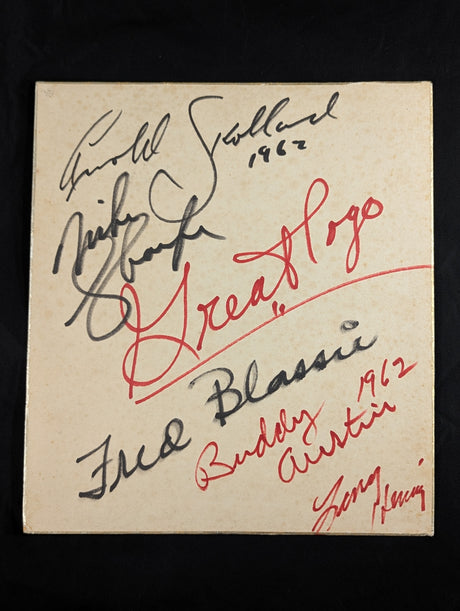 Arnold Skolland
1962
Mike
Sharpe
Great Togo
Fred Blassie
Buddy 1962
Austin
Larry
Hennig